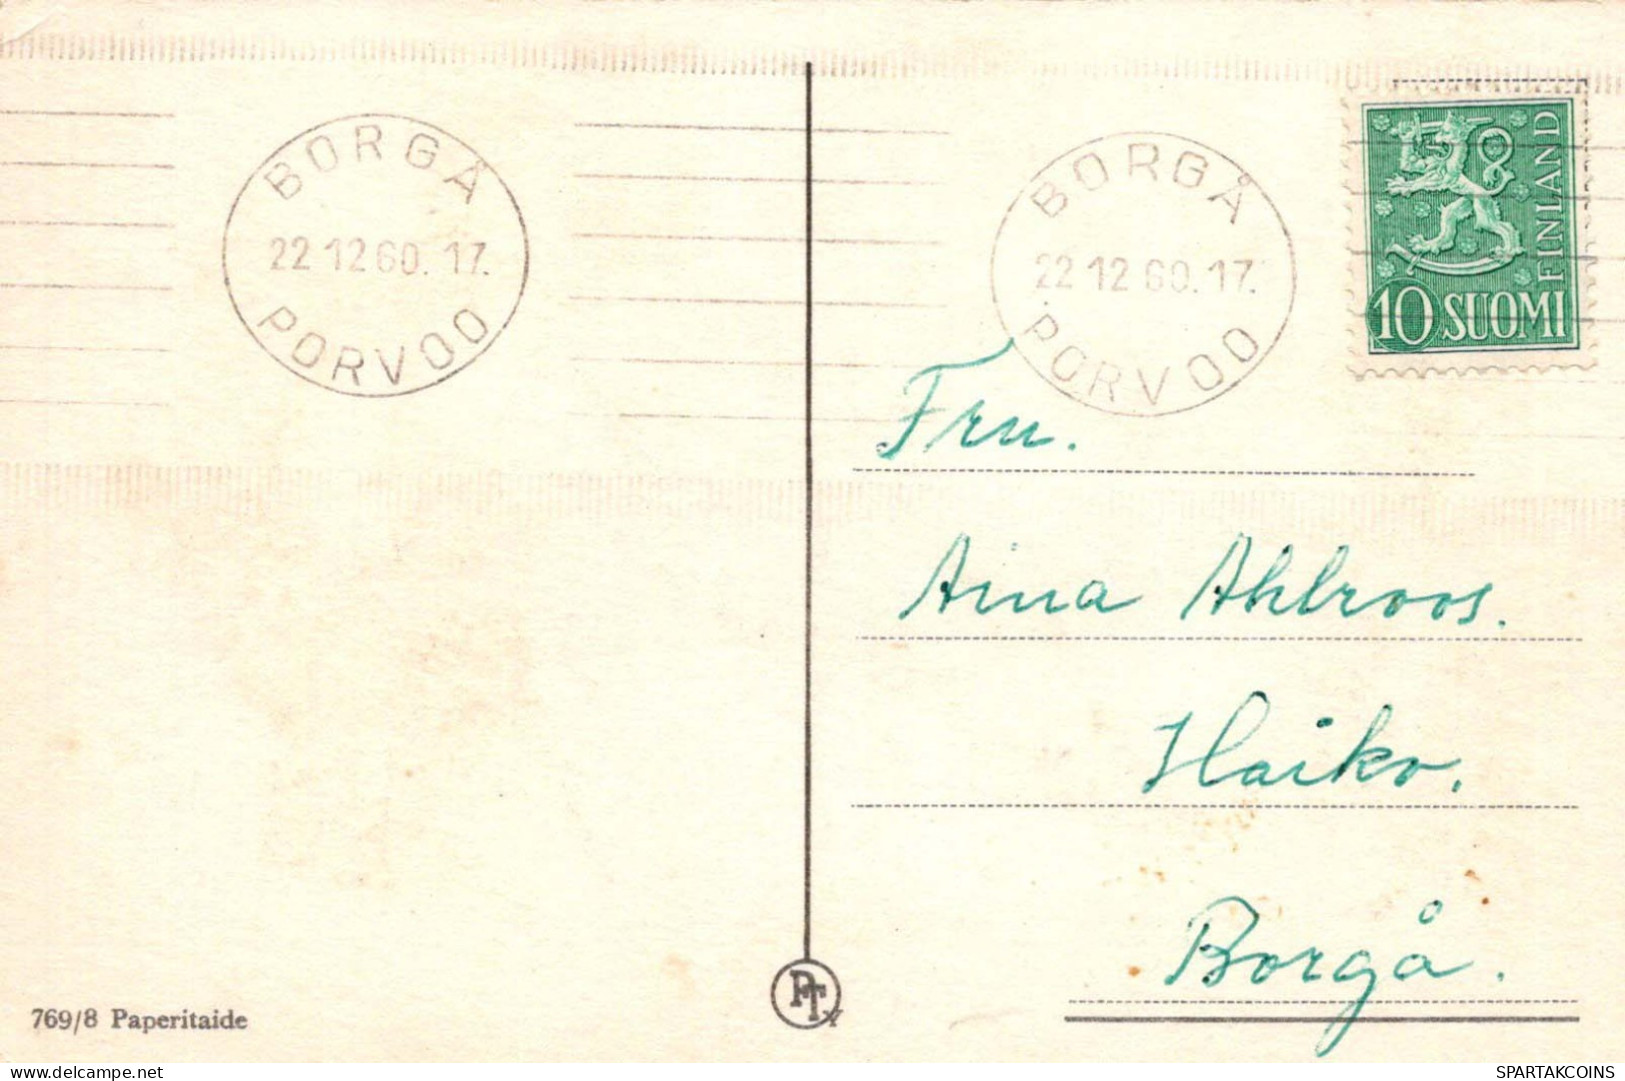 BORGÅ
22 12 60. 17.
PORVOO
BORGÅ
22 12 60. 17.
PORVOO
FINLAND
10 SUOMI
Fru.
Aina Ahlroos.
Haiko.
Borgå.
PT
OY
769/8 Paperitaide
SPARTAKCOINS
delcampe.net